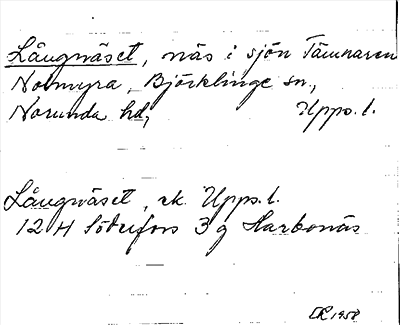 Långnäset, näs i sjön Tämnaren
Nolmyra, Björklinge sn.,
Norunda hd, Upps. l.
Långnäset, ek. Upps. l.
12 H Söderfors 3 g Harbonäs
1958